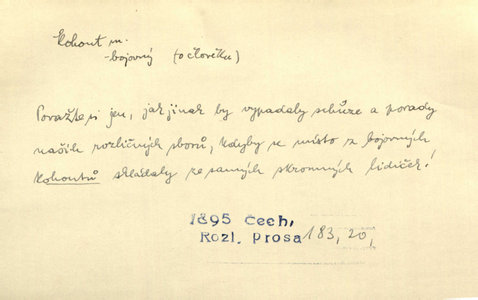 Kohout m.
- bojovný (o člověku)
Považte si jen, jak jinak by vypadaly schůze a porady
našich rozličných sborů, kdyby se místo z bojovných
kohoutů skládaly ze samých skromných lidiček!
1895 Čech,
Rozl. Prosa 183, 20,